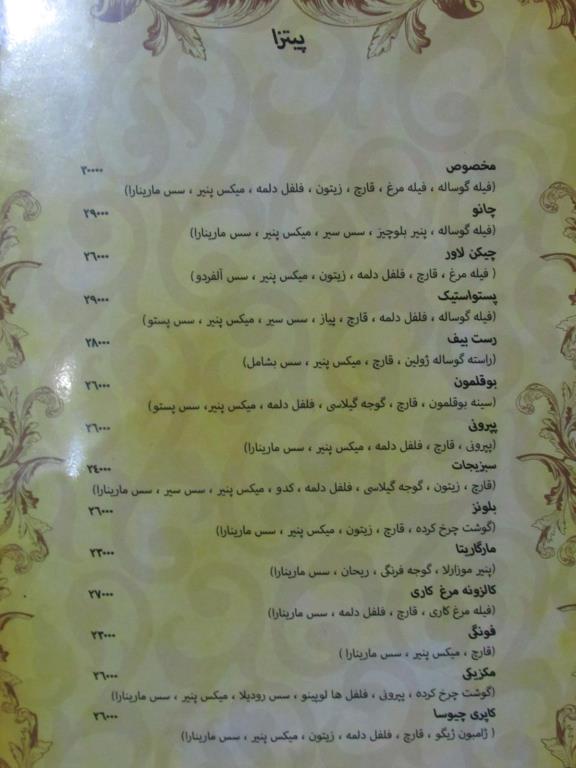 پیتزا
مخصوص ۳۰۰۰۰
(فیله گوساله ، فیله مرغ ، قارچ ، زیتون ، فلفل دلمه ، میکس پنیر ، سس مارینارا)
چانو ۲۹۰۰۰
(فیله گوساله ، پنیر بلوچیز ، سس سیر ، میکس پنیر ، سس مارینارا)
چیکن لاور ۲۶۰۰۰
( فیله مرغ ، قارچ ، فلفل دلمه ، زیتون ، میکس پنیر ، سس آلفردو)
پستواستیک ۲۹۰۰۰
(فیله گوساله ، فلفل دلمه ، قارچ ، پیاز ، سس سیر ، میکس پنیر ، سس پستو)
رست بیف ۲۸۰۰۰
(راسته گوساله ژولین ، قارچ ، میکس پنیر ، سس بشامل)
بوقلمون ۲۶۰۰۰
(سینه بوقلمون ، قارچ ، گوجه گیلاسی ، فلفل دلمه ، میکس پنیر، سس پستو)
پپرونی ۲۶۰۰۰
(پپرونی ، قارچ ، فلفل دلمه ، میکس پنیر ، سس مارینارا)
سبزیجات ۲۴۰۰۰
(قارچ ، زیتون ، گوجه گیلاسی ، فلفل دلمه ، کدو ، میکس پنیر ، سس سیر ، سس مارینارا)
بلونز ۲۶۰۰۰
(گوشت چرخ کرده ، قارچ ، زیتون ، میکس پنیر ، سس مارینارا)
مارگاریتا ۲۳۰۰۰
(پنیر موزارلا ، گوجه فرنگی ، ریحان ، سس مارینارا)
کالزونه مرغ کاری ۲۷۰۰۰
(فیله مرغ کاری ، قارچ ، فلفل دلمه ، سس مارینارا)
فونگی ۲۳۰۰۰
(قارچ ، میکس پنیر ، سس مارینارا )
مکزیکی ۲۶۰۰۰
(گوشت چرخ کرده ، پپرونی ، فلفل ها لوپینو ، سس رودیلا ، میکس پنیر ، سس مارینارا)
کاپری چیوسا ۲۶۰۰۰
( ژامبون ژیگو ، قارچ ، فلفل دلمه ، زیتون ، میکس پنیر ، سس مارینارا)